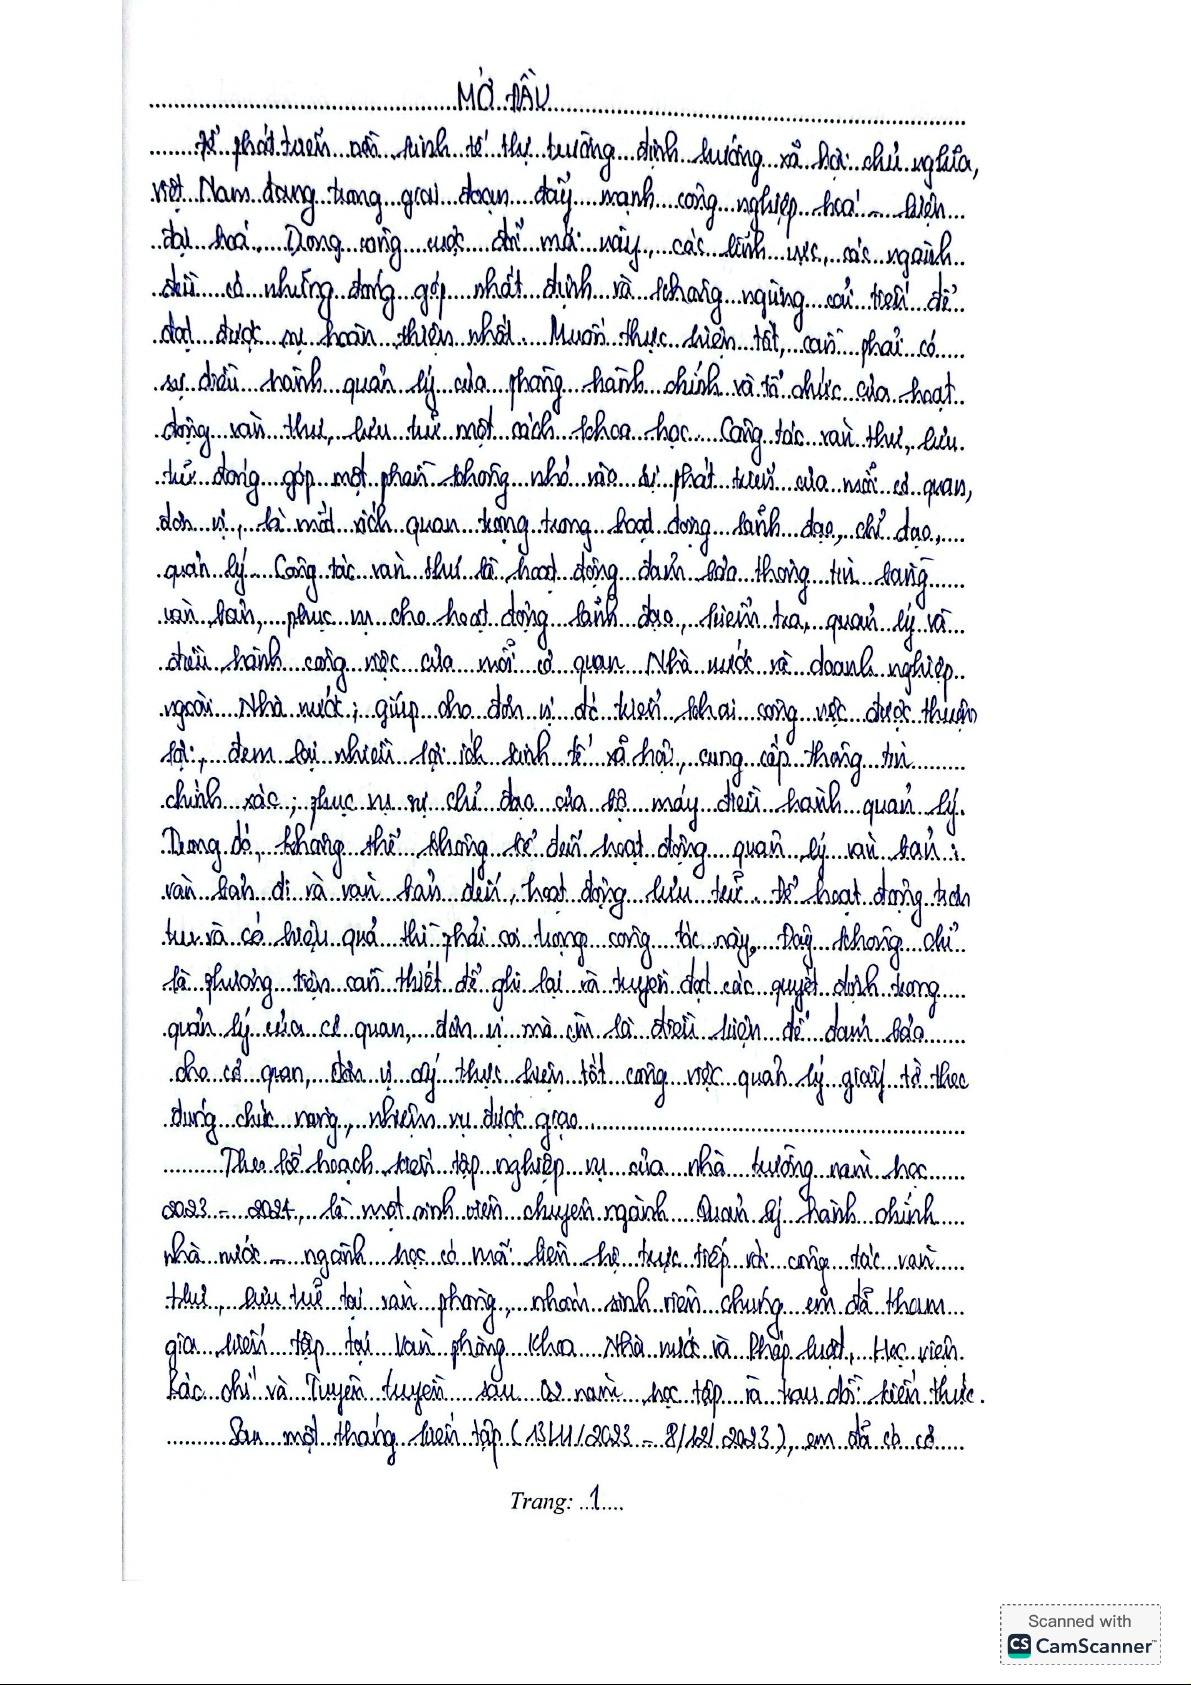 MỞ ĐẦU
Để phát triển nền kinh tế thị trường định hướng xã hội chủ nghĩa,
Việt Nam đang trong giai đoạn đẩy mạnh công nghiệp hoá - hiện
đại hoá. Trong công cuộc đổi mới này, các lĩnh vực, các ngành
đều có những đóng góp nhất định và không ngừng cải tiến để
đạt được sự hoàn thiện nhất. Muốn thực hiện tốt, cần phải có
sự điều hành quản lý của phòng hành chính và tổ chức của hoạt
động văn thư, lưu trữ một cách khoa học. Công tác văn thư, lưu
trữ đóng góp một phần không nhỏ vào sự phát triển của mỗi cơ quan,
đơn vị, là mắt xích quan trọng trong hoạt động lãnh đạo, chỉ đạo,
quản lý. Công tác văn thư là hoạt động đảm bảo thông tin bằng
văn bản, phục vụ cho hoạt động lãnh đạo, kiểm tra, quản lý và
điều hành công việc của mỗi cơ quan Nhà nước và doanh nghiệp
ngoài Nhà nước; giúp cho đơn vị đó triển khai công việc được thuận
lợi, đem lại nhiều lợi ích kinh tế xã hội, cung cấp thông tin
chính xác; phục vụ sự chỉ đạo của bộ máy điều hành quản lý.
Trong đó, không thể không kể đến hoạt động quản lý văn bản:
văn bản đi và văn bản đến, hoạt động lưu trữ. Để hoạt động trơn
tru và có hiệu quả thì phải coi trọng công tác này. Đây không chỉ
là phương tiện cần thiết để ghi lại và truyền đạt các quyết định trong
quản lý của cơ quan, đơn vị mà còn là điều kiện để đảm bảo
cho cơ quan, đơn vị ấy thực hiện tốt công việc quản lý giấy tờ theo
đúng chức năng, nhiệm vụ được giao.
Theo kế hoạch kiến tập nghiệp vụ của nhà trường năm học
2023 - 2024, là một sinh viên chuyên ngành Quản lý hành chính
nhà nước - ngành học có mối liên hệ trực tiếp với công tác văn
thư, lưu trữ tại văn phòng, nhóm sinh viên chúng em đã tham
gia kiến tập tại Văn phòng Khoa Nhà nước và Pháp luật, Học viện
Báo chí và Tuyên truyền sau 02 năm học tập và trau dồi kiến thức.
Sau một tháng kiến tập (13/11/2023 - 8/12/2023), em đã có cơ
Trang: 1
Scanned with
CS CamScanner